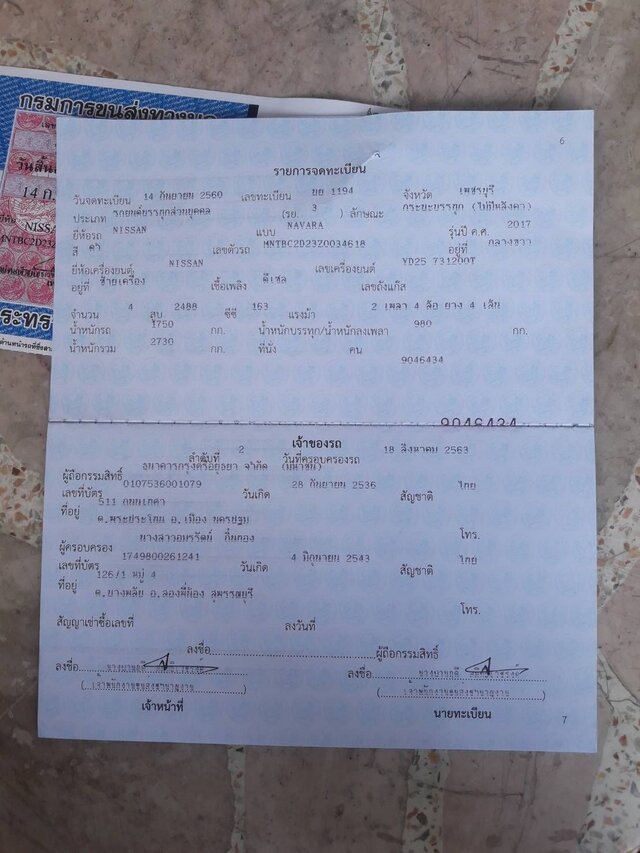 กรมการขนส่งทางบก
วันสิ้น
14 ก.
NISS
MNTBC2D23
กระทร
6
รายการจดทะเบียน
วันจดทะเบียน 14 กันยายน 2560 เลขทะเบียน 1194 จังหวัด เพชรบุรี
ประเภท รถยนต์บรรทุกส่วนบุคคล (รย. 3 ) ลักษณะ กระบะบรรทุก (ไม่มีหลังคา)
ยี่ห้อรถ NISSAN แบบ NAVARA รุ่นปี ค.ศ. 2017
สี ดำ เลขตัวรถ MNTBC2D23Z0034618 อยู่ที่ กลางขวา
ยี่ห้อเครื่องยนต์ NISSAN เลขเครื่องยนต์ YD25 731200T
อยู่ที่ ซ้ายเครื่อง เชื้อเพลิง ดีเซล เลขถังแก๊ส
จำนวน 4 สูบ 2488 ซีซี 163 แรงม้า 2 เพลา 4 ล้อ ยาง 4 เส้น
น้ำหนักรถ 1750 กก. น้ำหนักบรรทุก/น้ำหนักลงเพลา 980 กก.
น้ำหนักรวม 2730 กก. ที่นั่ง คน
9046434
9046434
เจ้าของรถ
ลำดับที่ 2 วันที่ครอบครองรถ 18 สิงหาคม 2563
ผู้ถือกรรมสิทธิ์ ธนาคารกรุงศรีอยุธยา จำกัด (มหาชน)
เลขที่บัตร 0107536001079 วันเกิด 28 กันยายน 2536 สัญชาติ ไทย
ที่อยู่ 511 ถนนเทศา
ต.พระประโทน อ.เมือง นครปฐม โทร.
ผู้ครอบครอง นางสาวอมรรัตน์ กิ่นทอง
เลขที่บัตร 1749800261241 วันเกิด 4 มิถุนายน 2543 สัญชาติ ไทย
ที่อยู่ 126/1 หมู่ 4
ต.ยางพลับ อ.สองพี่น้อง สุพรรณบุรี โทร.
สัญญาเช่าซื้อเลขที่ ลงวันที่
ลงชื่อ ผู้ถือกรรมสิทธิ์
ลงชื่อ ลงชื่อ
(เจ้าพนักงานขนส่งชำนาญงาน) (เจ้าพนักงานขนส่งชำนาญงาน)
เจ้าหน้าที่ นายทะเบียน
7